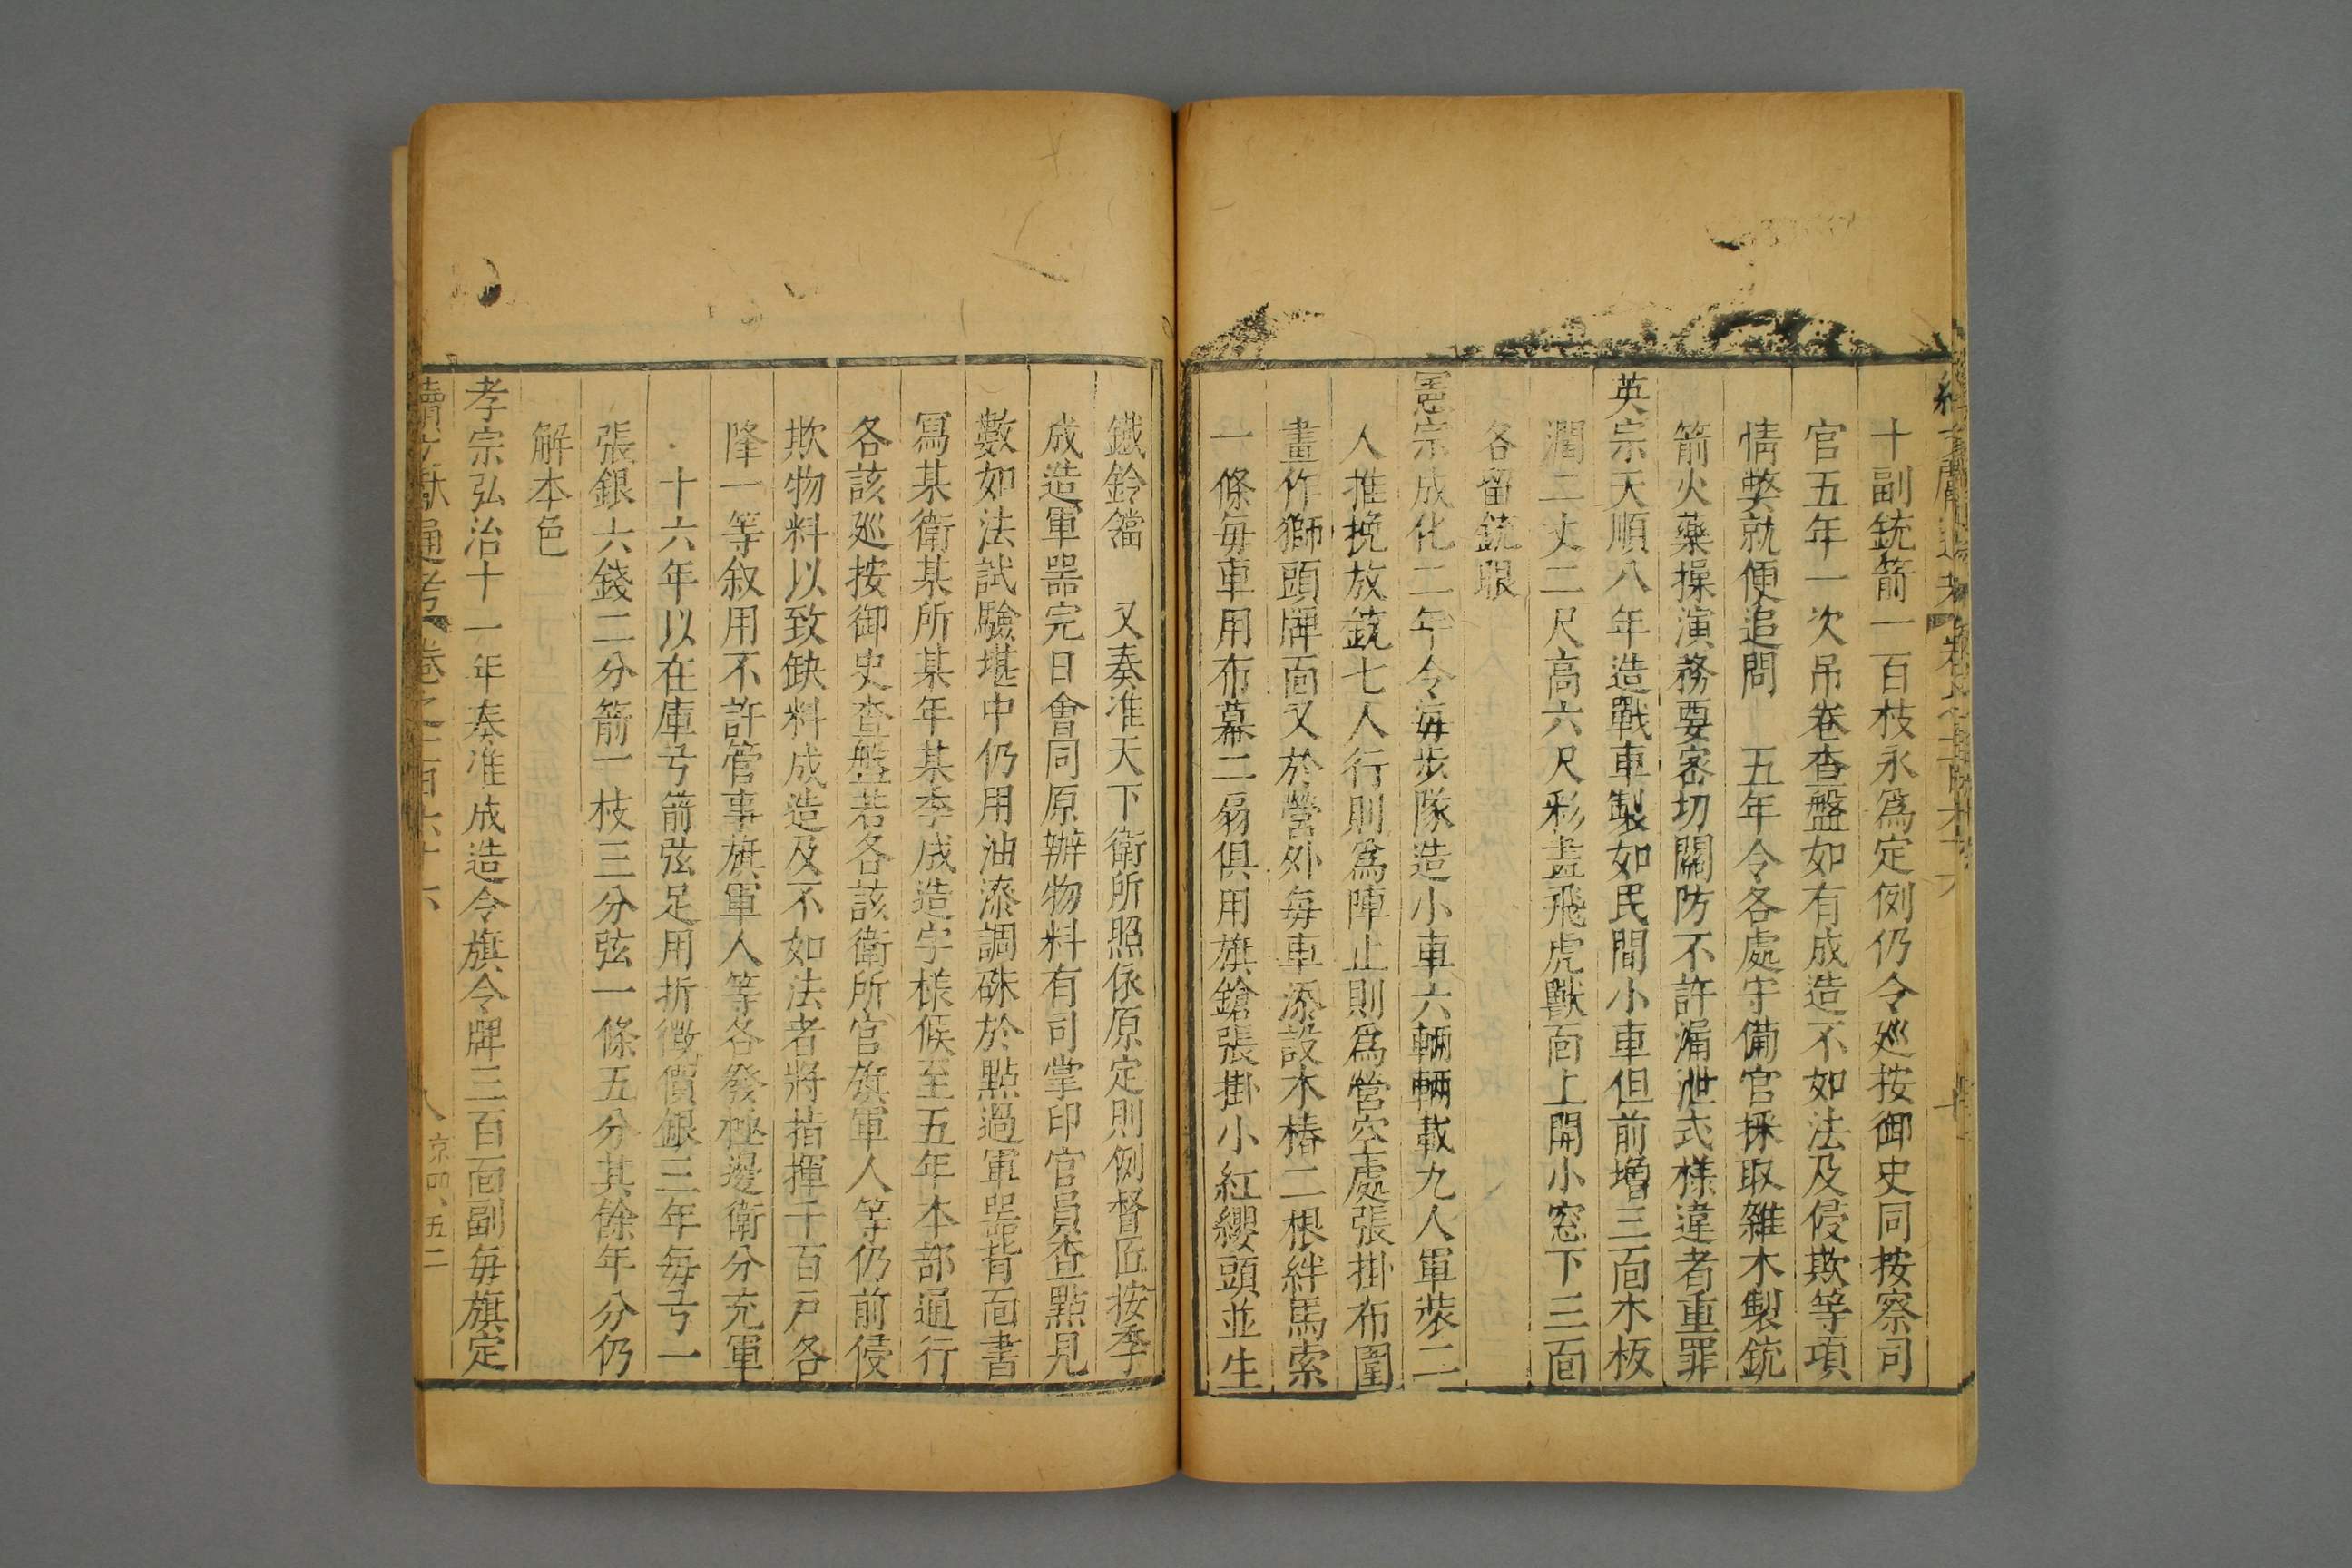 十副銃箭一百枝永爲定例仍令廵按御史同按察司
官五年一次吊卷查盤如有成造不如法及侵欺等項
情獘就便追問　五年令各處守備官採取雜木製銃
箭火藥操演務要密切關防不許漏泄式樣違者重罪
英宗天順八年造戰車製如民間小車但前增三面木板
濶二丈二尺高六尺彩畫飛虎獸面上開小窓下三面
各留銃眼
憲宗成化二年令每步隊造小車六輛輛載九人軍裝二
人推挽放銃七人行則爲陣止則爲營空處張掛布圍
畫作獅頭牌面又於營外每車添設木樁二根絆馬索
一條每車用布幕二扇俱用旗鎗張掛小紅纓頭並生
鐵鈴鐺　又奏准天下衛所照依原定則例督匠按季
成造軍噐完日會同原辦物料有司掌印官員查點見
數如法試驗堪中仍用油漆調硃於點過軍噐背面書
寫某衛某所某年某季成造字樣候至五年本部通行
各該廵按御史查盤若各該衛所官旗軍人等仍前侵
欺物料以致缺料成造及不如法者將指揮千百戶各
降一等叙用不許管事旗軍人等各發極邊衛分充軍
十六年以在庫弓箭弦足用折徴價銀三年每弓一
張銀六錢二分箭一枝三分弦一條五分其餘年分仍
解本色
孝宗弘治十一年奏准成造令旗令牌三百面副每旗定
續文獻通考 卷之一百六十六 八 京四 五二